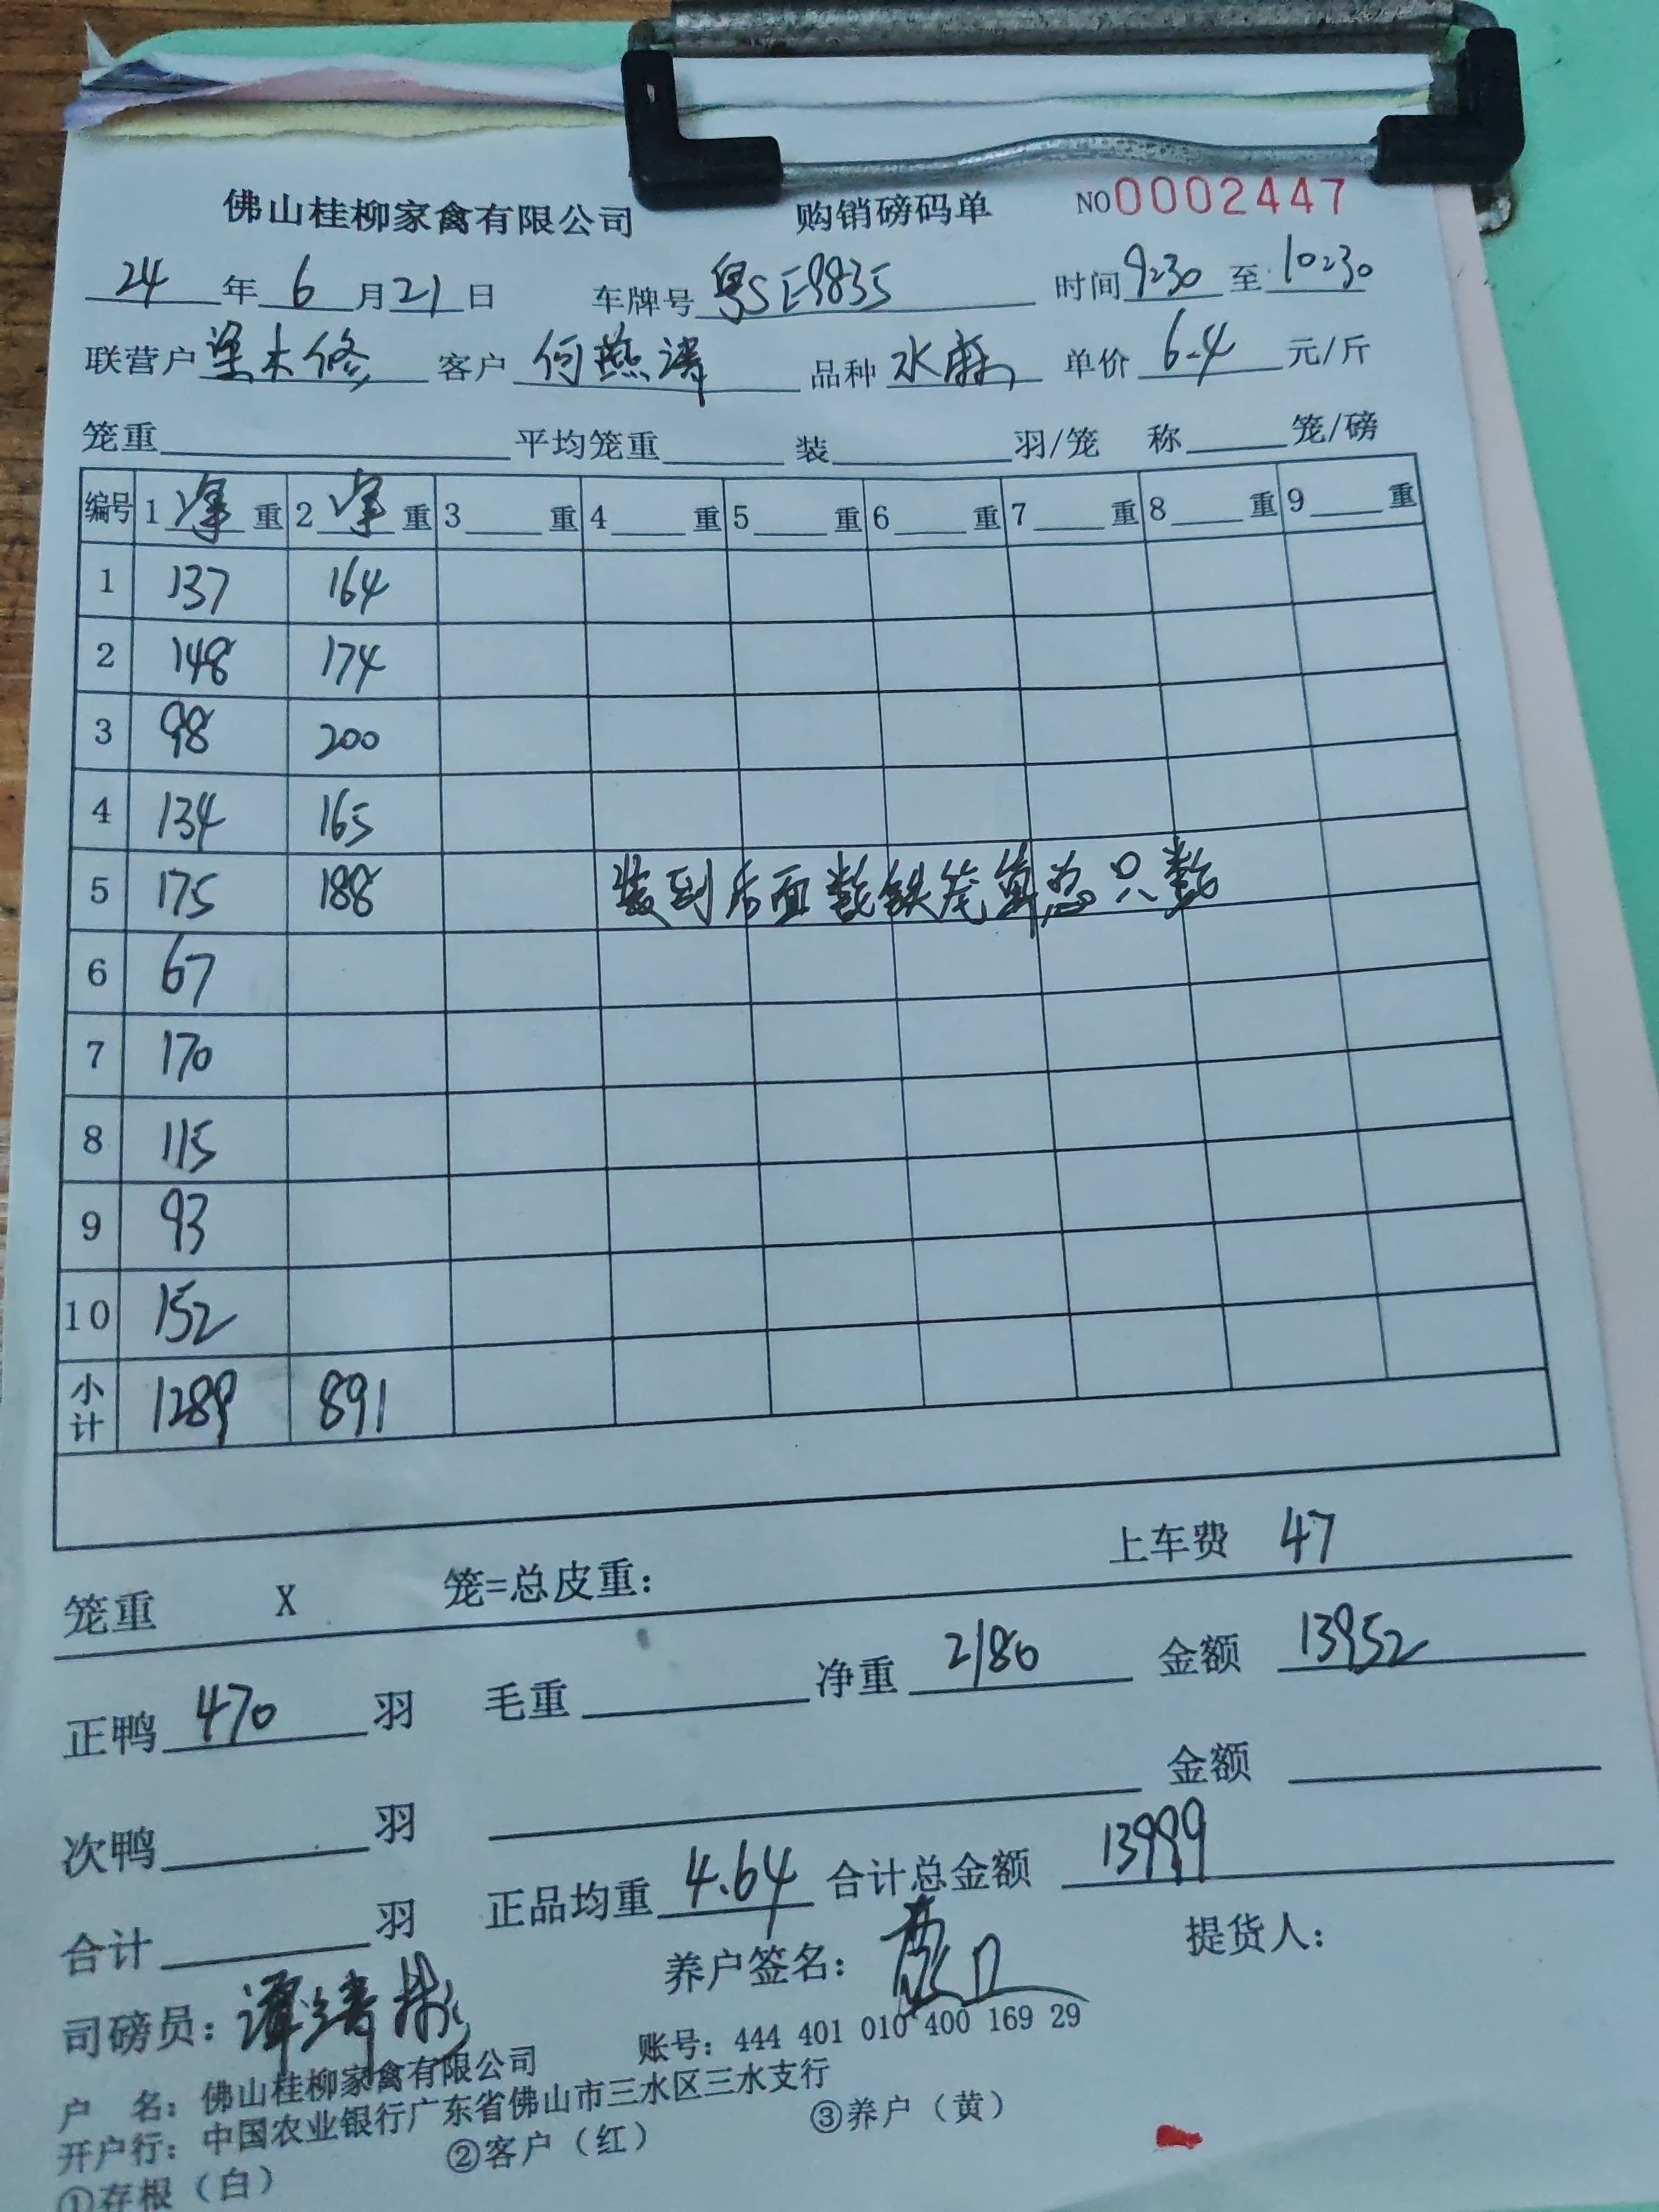 佛山桂柳家禽有限公司 购销磅码单 NO0002447
24年6月21日 车牌号 粤SE9835 时间9:30至10:30
联营户 梁木修 客户 何燕涛 品种 水麻 单价 6.4 元/斤
笼重 平均笼重 装 羽/笼 称 笼/磅
编号 1净重 2净重 3重 4重 5重 6重 7重 8重 9重
1 137 164
2 148 174
3 98 200
4 134 165
5 175 188 装到后面数铁笼算总只数
6 67
7 170
8 115
9 93
10 152
小计 1289 891
上车费 47
笼重 X 笼=总皮重:
正鸭 470 羽 毛重 净重 2180 金额 13952
次鸭 羽 金额
合计 羽 正品均重 4.64 合计总金额 13999
司磅员: 谭 彬 养户签名: 提货人:
户 名: 佛山桂柳家禽有限公司 账号: 444 401 010 400 169 29
开户行: 中国农业银行广东省佛山市三水区三水支行
①存根(白) ②客户(红) ③养户(黄)